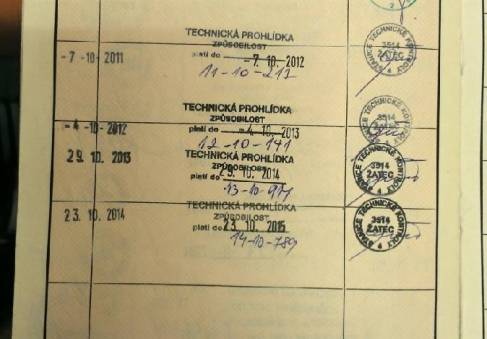 TECHNICKÁ PROHLÍDKA
ZPŮSOBILOST
-7 -10- 2011 platí do -7. 10. 2012
11-10-217
3514
ŽATEC
TECHNICKÁ PROHLÍDKA
ZPŮSOBILOST
-4 -10- 2012 platí do -4. 10. 2013
12-10-141
3514
ŽATEC
STANICE TECHNICKÉ KONTROLY
29. 10. 2013 TECHNICKÁ PROHLÍDKA
ZPŮSOBILOST
platí do 29. 10. 2014
13-10-971
3514
ŽATEC
STANICE TECHNICKÉ KONTROLY
4
23. 10. 2014 TECHNICKÁ PROHLÍDKA
ZPŮSOBILOST
platí do 23. 10. 2015
14-10-789
3514
ŽATEC
STANICE TECHNICKÉ KONTROLY
4